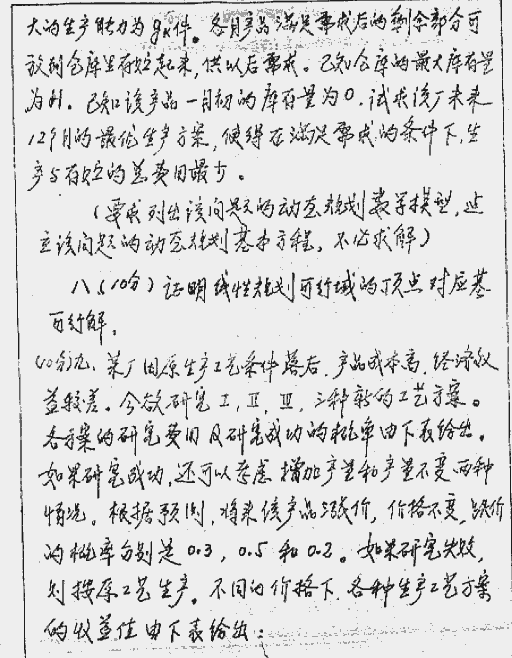 大的生产能力为gk件。各月产品满足需求后的剩余部分可
放到仓库里存贮起来,供以后需求。已知仓库的最大库存量
为H。已知该产品一月初的库存量为0.试求该厂未来
12个月的最优生产方案,使得在满足需求的条件下,生
产与存贮的总费用最少。
(要求列出该问题的动态规划数学模型,建
立该问题的动态规划基本方程,不必求解)
八、(10分)证明线性规划可行域的顶点对应基
可行解.
(10分)九、某厂因原生产工艺条件落后,产品成本高,经济效
益较差。今欲研究I,II,III,三种新的工艺方案。
各方案的研究费用及研究成功的概率由下表给出。
如果研究成功,还可以考虑增加产量和产量不变两种
情况。根据预测,将来该产品涨价,价格不变,跌价
的概率分别是0.3,0.5和0.2。如果研究失败,
则按原工艺生产。不同的价格下,各种生产工艺方案
的收益值由下表给出: